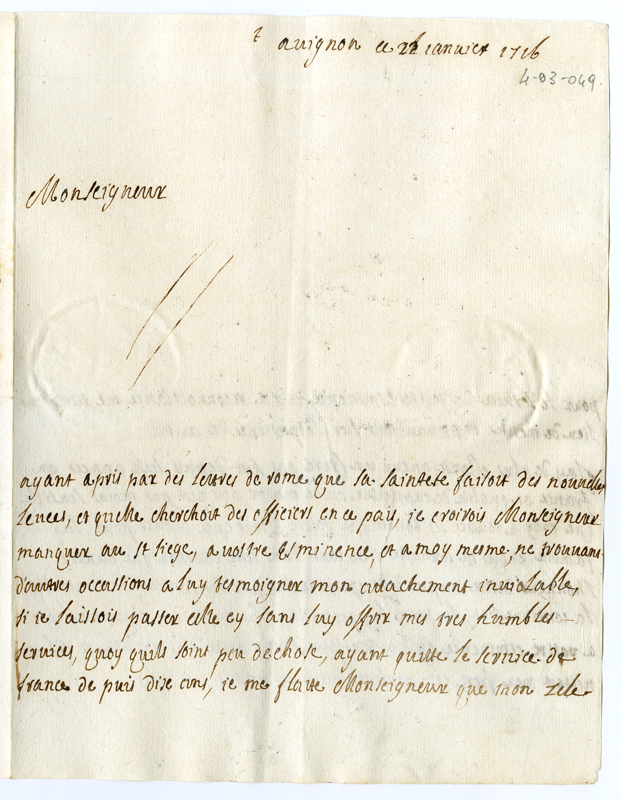 avignon ce janvier 1716
4-03-049.
Monseigneur
ayant apris par des lettres de rome que sa saintete faisoit des nouvelles
levees, et quelle cherchoit des officiers en ce païs, ie croirois Monseigneur
manquer au st siege, a vostre Esminence, et a moy mesme, ne trouvant
d'autres occassions a luy tesmoigner mon attachement inviolable,
si ie laissois passer celle cy sans luy offrir mes tres humbles
services, quoy quils soint peu de chose, ayant quitte le service de
france de puis dise ans, ie me flatte Monseigneur que mon zele